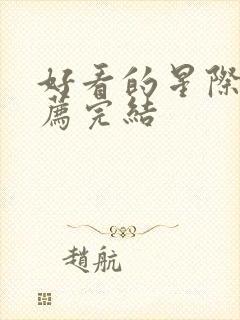 好看的星際
薦完結
趙航